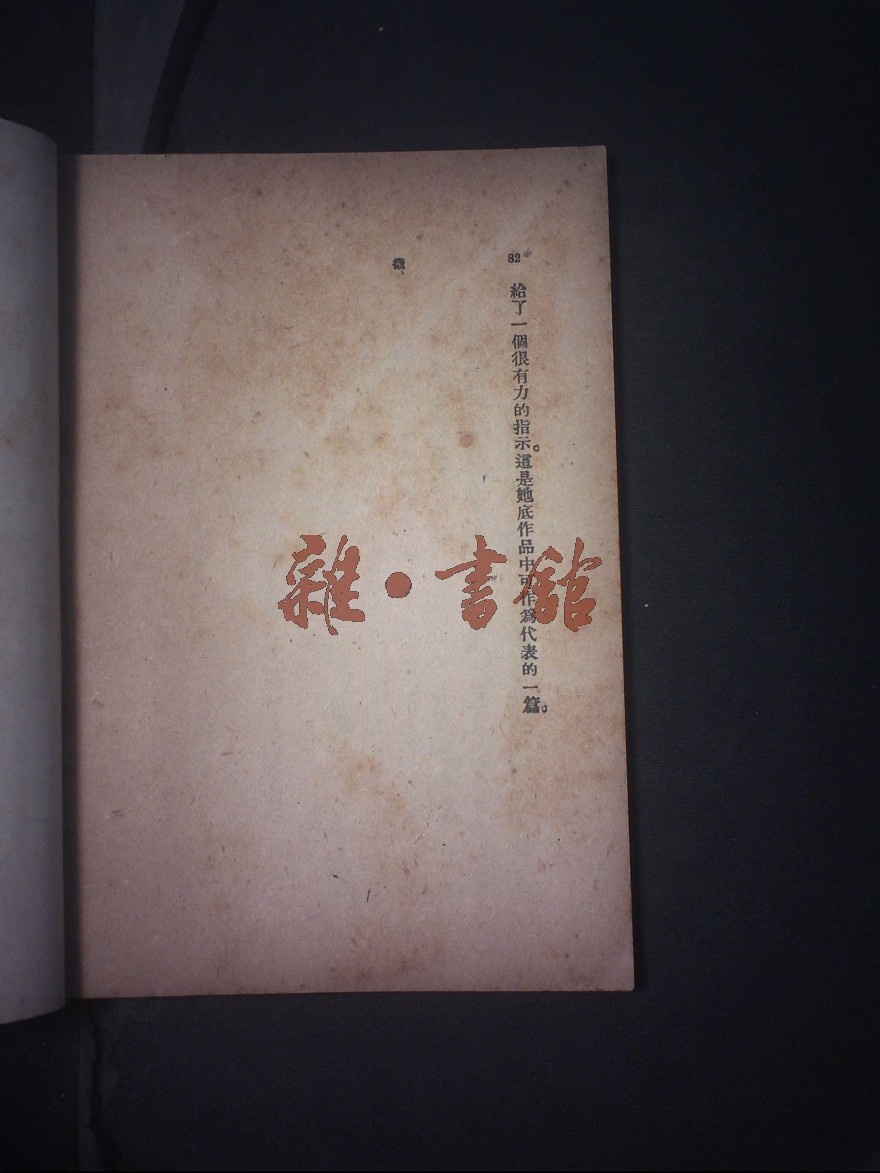 82
給了一個很有力的指示。這是她底作品中可作爲代表的一篇。
雜・書館